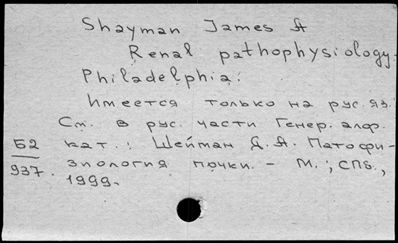 Shayman James A
Renal pathophysiology.
Philadelphia:
Имеется только на рус. яз.
См. в рус. части Генер. алф.
Б2 кат.: Шейман Д. А. Патофи-
937. зиология почки. - М.; СПб.,
1999.